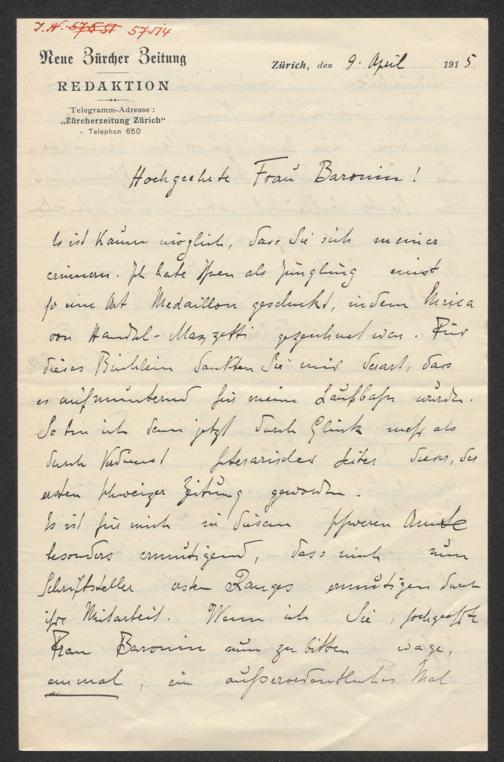 J.N. 57651 57514
Neue Zürcher Zeitung
REDAKTION
Telegramm-Adresse:
„Zürcherzeitung Zürich“
• Telephon 650
Zürich, den 9. April 1915
Hochgeehrte Frau Baronin!
Es ist kaum möglich, dass Sie sich meiner
erinnern. Ich habe Ihnen als Jüngling einst
so eine Art Medaillon geschenkt, in dem Enrica
von Handel-Mazzetti gezeichnet war. Für
dieses Büchlein dankten Sie mir derart, dass
es aufmunternd für meine Laufbahn wurde.
So bin ich denn jetzt durch Glück mehr als
durch Verdienst literarischer Leiter dieser, der
ersten Schweizer Zeitung geworden.
Es ist für mich in diesem schweren Amte
besonders ermutigend, dass mich nun
Schriftsteller ersten Ranges ermutigen durch
ihre Mitarbeit. Wenn ich Sie, hochgeehrte
Frau Baronin nun zu bitten wage,
einmal, ein außerordentliches Mal